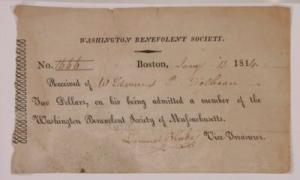 WASHINGTON BENEVOLENT SOCIETY.
No. 1666 Boston, Jany 13 1814
Received of Mr Edmund P.
Two Dollars, on his being admitted a member of the
Washington Benevolent Society of Massachusetts.
Vice Treasurer.